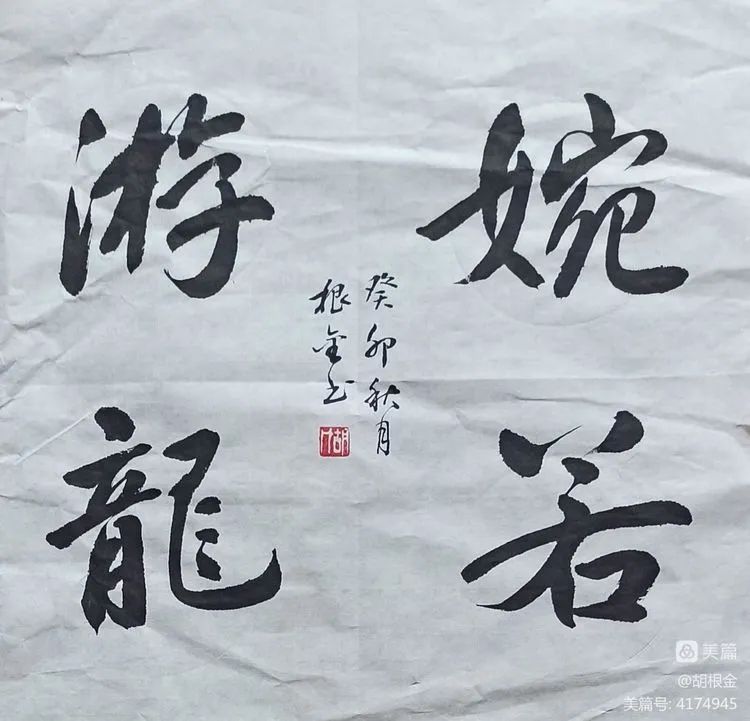 婉若
游龍
癸卯秋月
根金书
胡
美篇
@胡根金
美篇号: 4174945